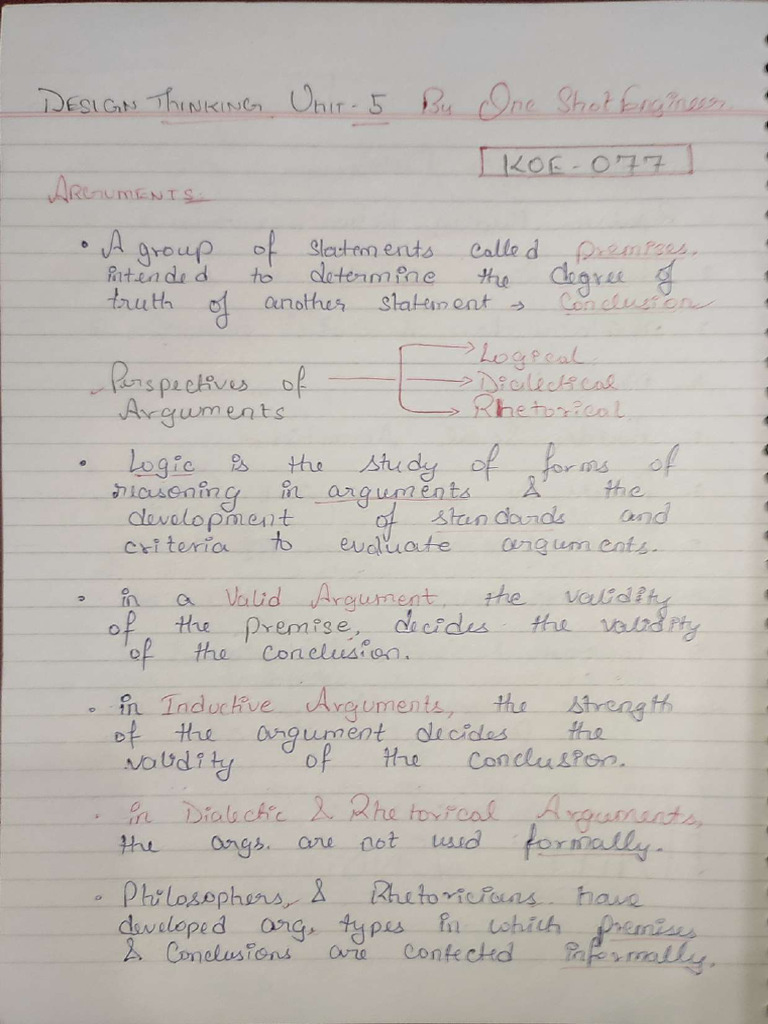 DESIGN THINKING Unit-5 By One Shot Engineer
KOE-077
ARGUMENTS
• A group of statements called premises,
intended to determine the degree of
truth of another statement → Conclusion
Perspectives of
Arguments
→ Logical
→ Dialectical
→ Rhetorical
• Logic is the study of forms of
reasoning in arguments & the
development of standards and
criteria to evaluate arguments.
• in a Valid Argument, the validity
of the premise, decides the validity
of the conclusion.
• in Inductive Arguments, the strength
of the argument decides the
validity of the conclusion.
• in Dialectic & Rhetorical Arguments,
the args. are not used formally.
• Philosophers, & Rhetoricians have
developed arg. types in which premises
& Conclusions are contected informally.